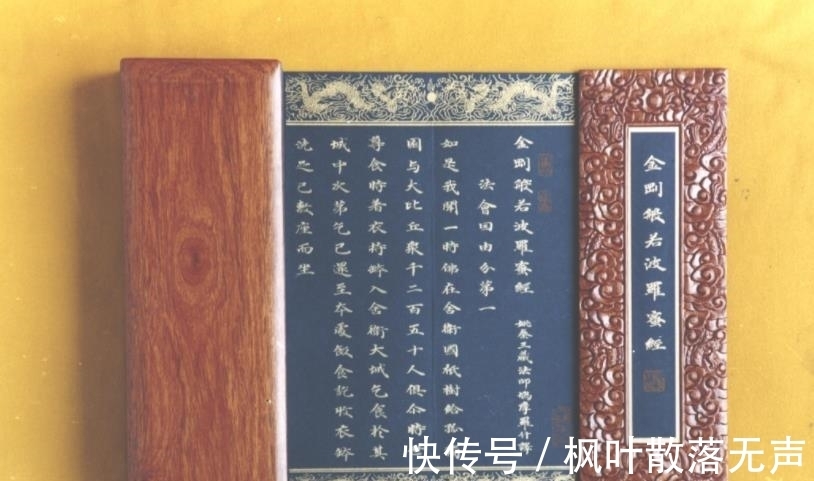 金剛般若波羅蜜經
金剛般若波羅蜜經 姚秦三藏法師鳩摩羅什譯
法會因由分第一
如是我聞一時佛在舍衛國祇樹給孤
園與大比丘衆千二百五十人俱尒時
尊食時著衣持鉢入舍衛大城乞食於其
城中次第乞已還至本處飯食訖收衣鉢
洗足已敷座而坐
快传号 / 枫叶散落无声